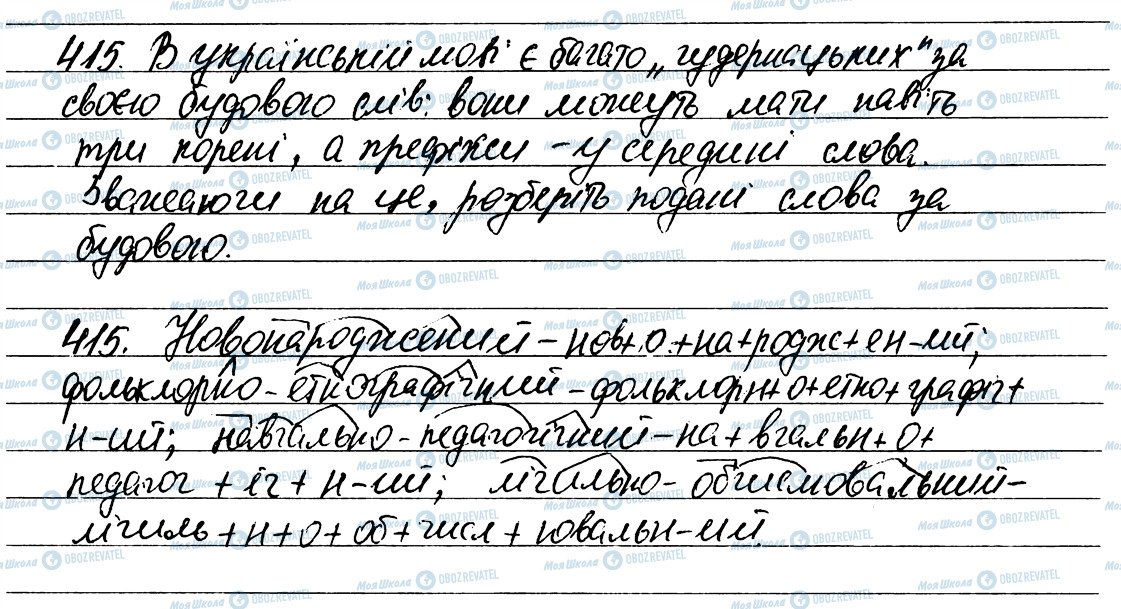 415. В українській мові є багато „чудернацьких" за
своєю будовою слів: вони можуть мати навіть
три корені, а префікси – у середині слова.
Зважаючи на це, розберіть подані слова за
будовою.
415. Новонароджений – нов+о+на+родж+ен-ий;
фольклорно-етнографічний – фольклорн+о+етно+графіч+
н-ий; навчально-педагогічний – на+вчальн+о+
педагог+іч+н-ий; лічильно-обчислювальний –
лічиль+н+о+об+числ+ювальн-ий.